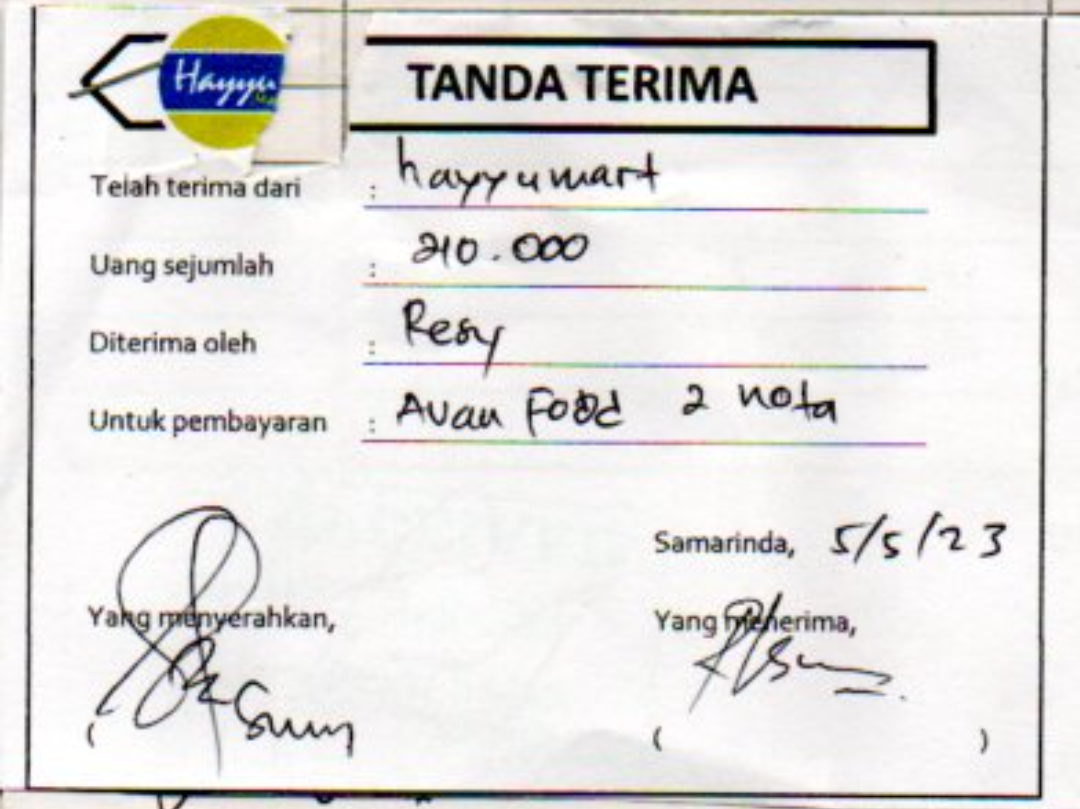 Hayyu
TANDA TERIMA
Telah terima dari : hayyumart
Uang sejumlah : 210.000
Diterima oleh : Resy
Untuk pembayaran : Avan Food 2 nota
Samarinda, 5/5/23
Yang menyerahkan, Yang menerima,
( ( )